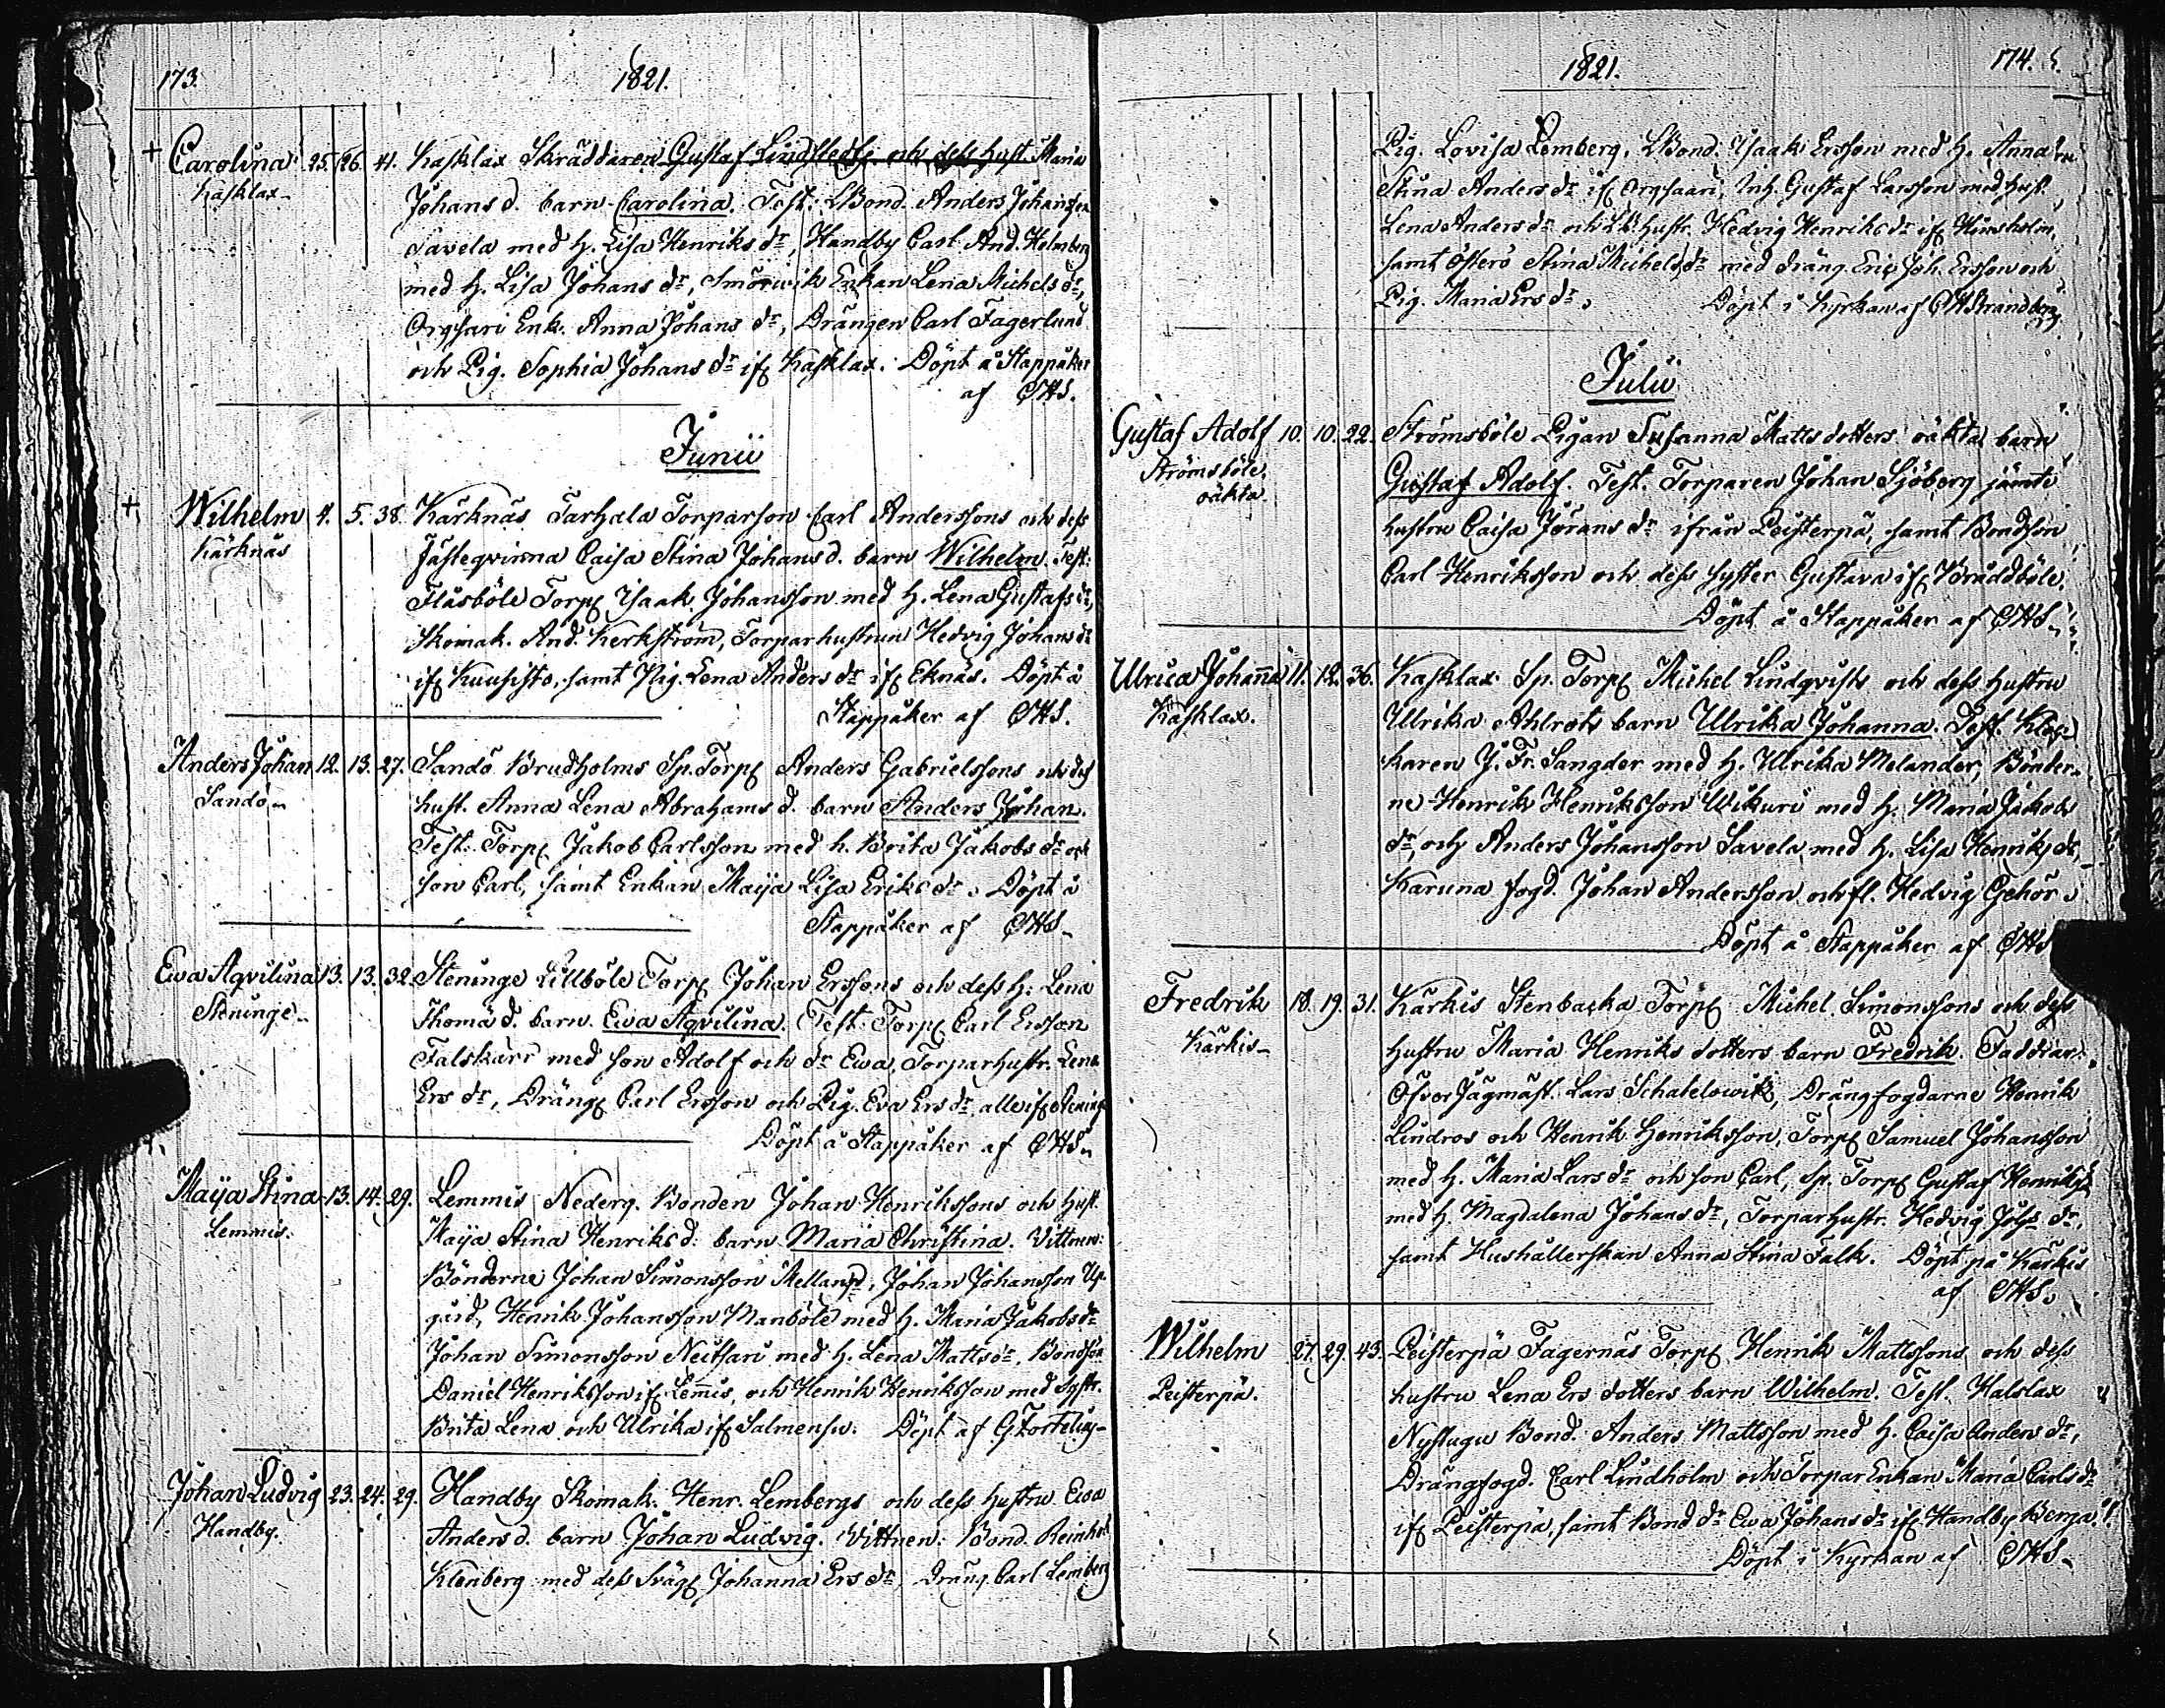 173.
1821.
+ Carolina 25. 26. 41. Kasklax Skräddaren Gustaf Lindstedts och dess hust. Maria
Kasklax Johans d. barn Carolina. Test: LBond. Anders Johansson
Savela med h. Lisa Henriks dr, Handby Carl And. Holmberg
med h. Lisa Johans dr, Smörwik Enkan Lena Michels dr,
Enk. Anna Johans dr, Drängen Carl Fagerlund
och Pig. Sophia Johans dr ifr Kasklax. Döpt å Stappåker
af
Junii
+ Wilhelm 4. 5. 38. Karknäs Torparson Carl Anderssons och dess
Karknäs fästeqvinna Caisa Stina Johans d. barn Wilhelm. Test:
Flåsböle Torp. Isaak Johansson med h. Lena Gustafs dr,
Skomak. And. Kerkström, Torparhustrun Hedvig Johans dr
ifr Kuusisto, samt Pig. Lena Anders dr ifr Eknäs. Döpt å
Stappåker af
Anders Johan 12. 13. 27. Sandö Brudholms Sp. Torp. Anders Gabrielssons och dess
Sandö hust. Anna Lena Abrahams d. barn Anders Johan.
Test: Torp. Jakob Carlsson med h. Brita Jakobs dr och
son Carl, samt Enkan Maija Lisa Eriks dr. Döpt å
Stappåker af
Ewa Aqvilina 13. 13. 32. Steninge Lillböle Torp. Johan Erssons och dess h. Lena
Steninge Thomä d. barn Ewa Aqvilina. Test: Torp. Carl Ersson
Falskärr med son Adolf och dr Ewa, Torparhustr. Lena
Ers dr, Dräng Carl Ersson och Pig. Eva Ers dr alle ifr Steninge
Döpt å Stappåker af
Maija Stina 13. 14. 29. Lemmis Nederg. Bonden Johan Henrikssons och hust.
Lemmis. Maija Stina Henriks d. barn Maria Christina. Vittnen:
Bönderne Johan Simonsson Melland, Johan Johansson Up-
gård, Henrik Johansson Manböle med h. Maria Jakobs dr
Johan Simonsson Neitsari med h. Lena Matts dr, Bondson
Daniel Henriksson ifr Lemis, och Henrik Henriksson med Systr.
Brita Lena och Ulrika ifr Salmensu. Döpt af G. Fortelius
Johan Ludvig 23. 24. 29. Handby Skomak. Henr. Lembergs och dess hustru Ewa
Handby. Anders d. barn Johan Ludvig. Vittnen: Bond. Reinhold
Klenberg med dess Sväg. Johanna Ers dr, Dräng Carl Lemberg
1821.
174.
Pig. Lovisa Lemberg, LBond. Isaak Ersson med h. Anna
Stina Anders dr ifr, Inh. Gustaf Larsson med hust.
Lena Anders dr och hustr. Hedvig Henriks dr ifr
samt Österö Stina Michels dr med dräng. Eric Joh. Ersson och
Pig. Maria Ers dr. Döpt i Kyrkan af Strandberg
Julii
Gustaf Adolf 10. 10. 22. Strömsböle Pigan Susanna Matts dotters oäkta barn
Strömsböle. Gustaf Adolf. Test. Torparen Johan Sjöberg jämte
oäkta. hustru Caisa Jörans dr ifrån Peisterpä, samt Bondson
Carl Henriksson och dess syster Gustava ifr Bruddböle.
Döpt å Stappåker af
Ulrica Johanna 11. 12. 36. Kasklax Sp. Torp. Michel Lindqvists och dess hustru
Kasklax. Ulrika Ahlrots barn Ulrika Johanna. Test. Kloc-
karen J. Fr. Sangder med h. Ulrika Melander, Bönder-
ne Henrik Henriksson Wikuri med h. Maria Jakobs
dr, och Anders Johansson Savela med h. Lisa Henriks dr,
Karuna fogd. Johan Andersson och fl. Hedvig Gehör.
Döpt å Stappåker af
Fredrik 18. 19. 31. Kärkis Stenbacka Torp. Michel Simonssons och dess
Kärkis hustru Maria Henriks dotters barn Fredrik. Faddrar:
Öfver Jägmäst. Lars Schatelowitz, Drängfogdarne Henrik
Lindros och Henrik Henriksson, Torp. Samuel Johansson
med h. Maria Lars dr och son Carl, Sp. Torp. Gustaf Henriksson
med h. Magdalena Johans dr, Torparhustr. Hedvig dr,
samt Hushållerskan Anna Stina Falk. Döpt på Kärkis
af
Wilhelm 27. 29. 43. Peisterpä Fagernäs Torp. Henrik Mattssons och dess
Peisterpä. hustru Lena Ers dotters barn Wilhelm. Test. Halslax
Nystugu Bond. Anders Mattsson med h. Caisa Anders dr,
Drängfogd. Carl Lindholm och Torpar Enkan Maria Carls dr
ifr Peisterpä, samt Bond dr Ewa Johans dr ifr Handby
Döpt i Kyrkan af